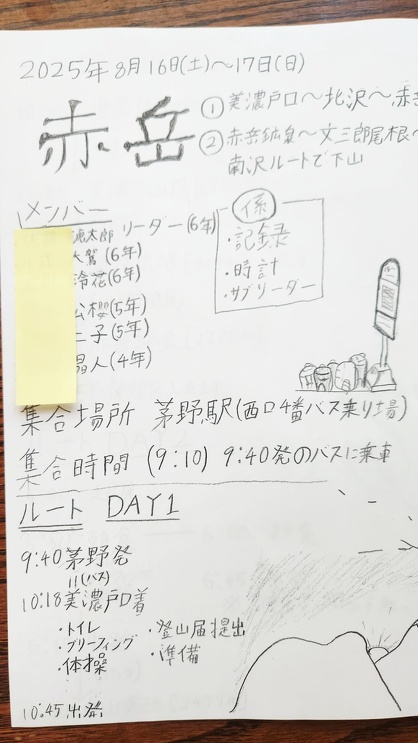 2025年8月16日(土)～17日(日)
赤岳
①美濃戸口～北沢～赤
②赤岳鉱泉～文三郎尾根～
南沢ルートで下山
メンバー
太郎 リーダー(6年)
(6年)
冷花(6年)
公櫻(5年)
二子(5年)
晶人(4年)
係
・記録
・時計
・サブリーダー
集合場所 茅野駅(西口4番バス乗り場)
集合時間 (9:10) 9:40発のバスに乗車
ルート DAY1
9:40茅野発
〃(バス)
10:18美濃戸口着
・トイレ ・登山届提出
・ブリーフィング ・準備
・体操
10:45出発